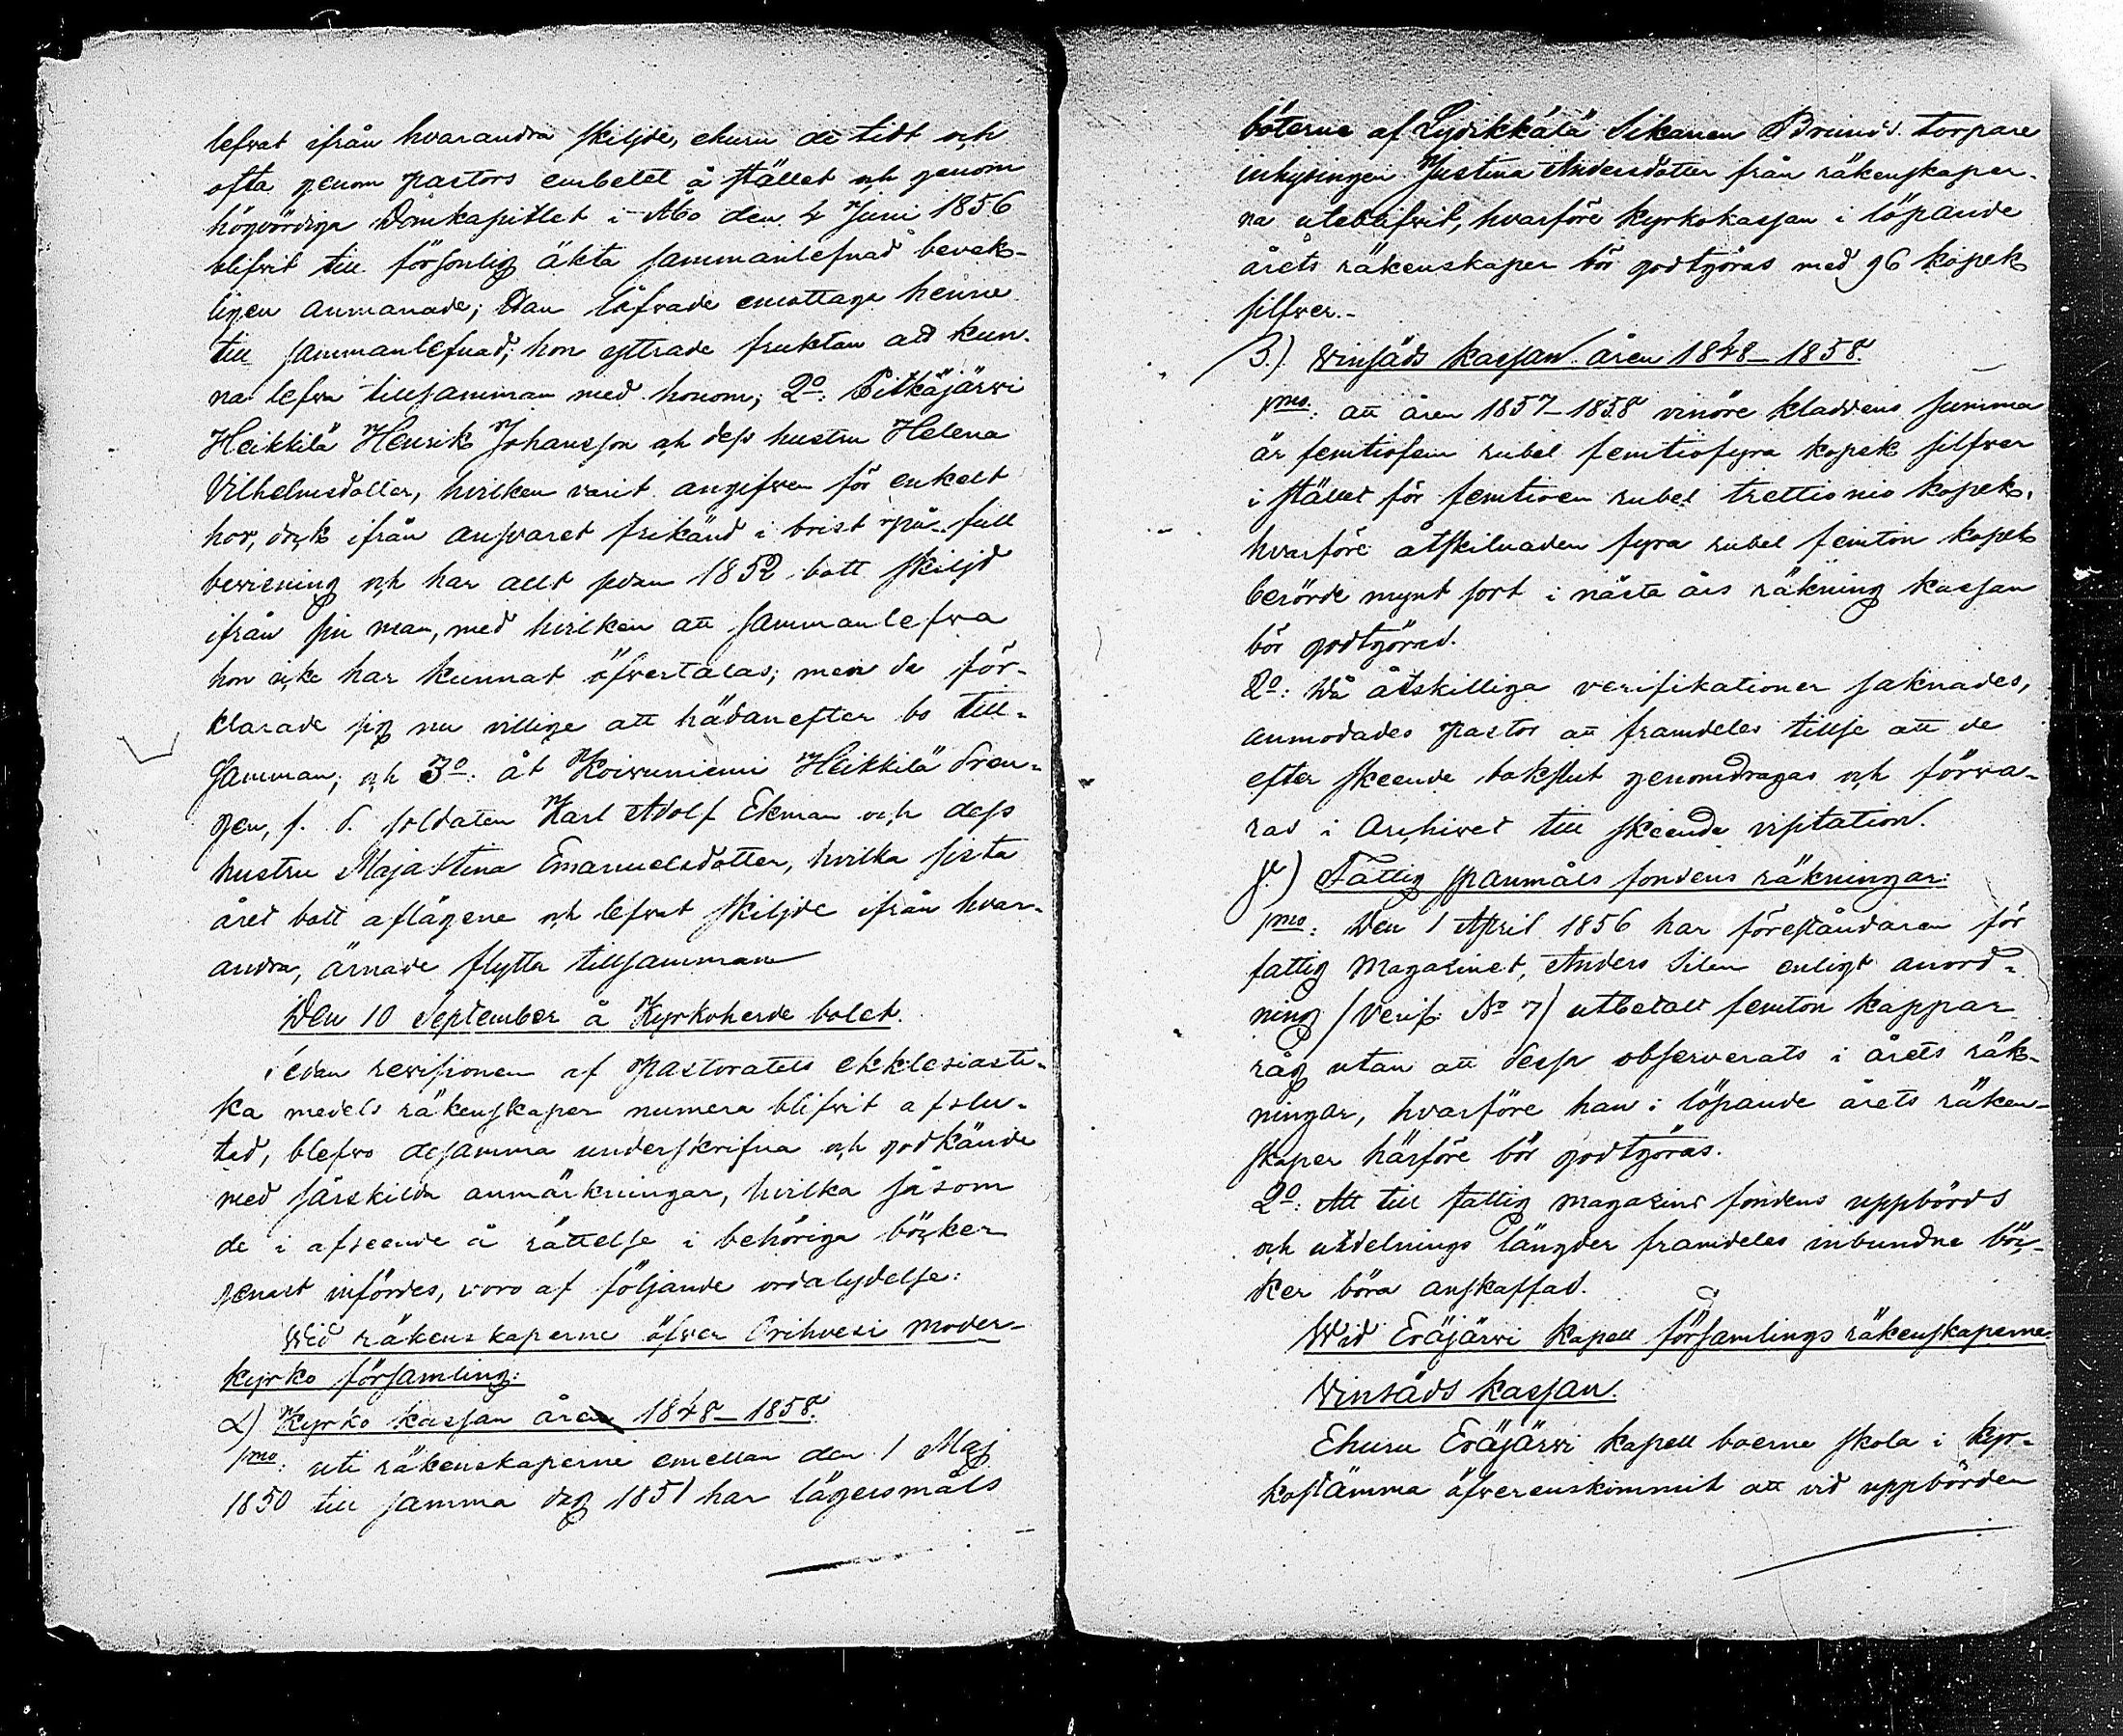 lefvat ifrån hvarandra skiljde, ehuru de tidt och
ofta genom pastors embetet å stället och genom
högvördiga Domkapitlet i Åbo den 4 Juni 1856
blifvit till försonlig äkta sammanlefnad bevek-
ligen anmanade; Han låfvade emottaga henne
till sammanlefnad; hon yttrade fruktan att kun-
na lefva tillsamman med honom; 2º: Pitkäjärvi
Heikkilä Henrik Johansson och dess hustru Helena
Vilhelmsdotter, hvilken varit angifven för enkelt
hor, dock ifrån ansvaret frikänd i brist på full
bevisning och har allt sedan 1852 bott skiljd
ifrån sin man, med hvilken att sammanlefva
hon icke har kunnat öfvertalas; men de för-
klarade sig nu villige att hädanefter bo till-
samman; och 3º: åt Koivuniemi Heikkilä dren-
gen, f. d. soldaten Karl Adolf Ekman och dess
hustru Maja Stina Emanuelsdotter, hvilka sista
året bott aflägsne och lefvat skiljde ifrån hvar-
andra, ärnade flytta tillsamman
Den 10 September å Kyrkoherde bolet.
Sedan revisionen af pastoratets ekklesiasti-
ka medels räkenskaper numera blifvit afslu-
tad, blefvo desamma underskrifna och godkände
med särskilda anmärkningar, hvilka såsom
de i afseende å rättelse i behöriga böcker
genast infördes, voro af följande ordalydelse:
Wid räkenskaperne öfver Orihvesi moder-
kyrko församling:
α) Kyrko kassan åren 1848–1858.
1mo: uti räkenskaperne emellan den 1 Maj
1850 till samma dag 1851 har lägersmåls
böterne af Lyöikkälä Sikanen Brunds torpare
inhysingen Justina Andersdotter från räkenskaper-
na uteblifvit, hvarföre kyrkokassan i löpande
årets räkenskaper bör godtgöras med 96 kopek
silfver.-
β.) Vinsåds kassan åren 1848–1858.
1mo: att åren 1857–1858 vinöre kladdens summa
är femtiofem rubel femtiofyra kopek silfver
i stället för femtioen rubel trettionio kopek,
hvarföre åtskilnaden fyra rubel femton kopek
berörde mynt sort i nästa års räkning kassan
bör godtgöras.
2º: Då åtskilliga verifikationer saknades,
anmodades pastor att framdeles tillse att de
efter skeende bokslut genomdragas och förva-
ras i Archivet till skeende visitation.
γ.) Fattig spanmåls fondens räkningar:
1mo: Den 1 April 1856 har föreståndaren för
fattig Magasinet, Anders Silen enligt anord-
ning /Verif. No 7/ utbetalt femton kappar
råg utan att dessa observerats i årets räk-
ningar, hvarföre han i löpande årets räken-
skaper härföre bör godtgöras.
2º: Att till fattig magasins fondens uppbörds
och utdelnings längder framdeles inbundne böc-
ker böra anskaffas.
Wid Eräjärvi Kapell församlings räkenskaperne.
Vinsåds kassan.
Ehuru Eräjärvi kapell boerne skola i kyr-
kostämma öfverenskommit att vid uppbörden